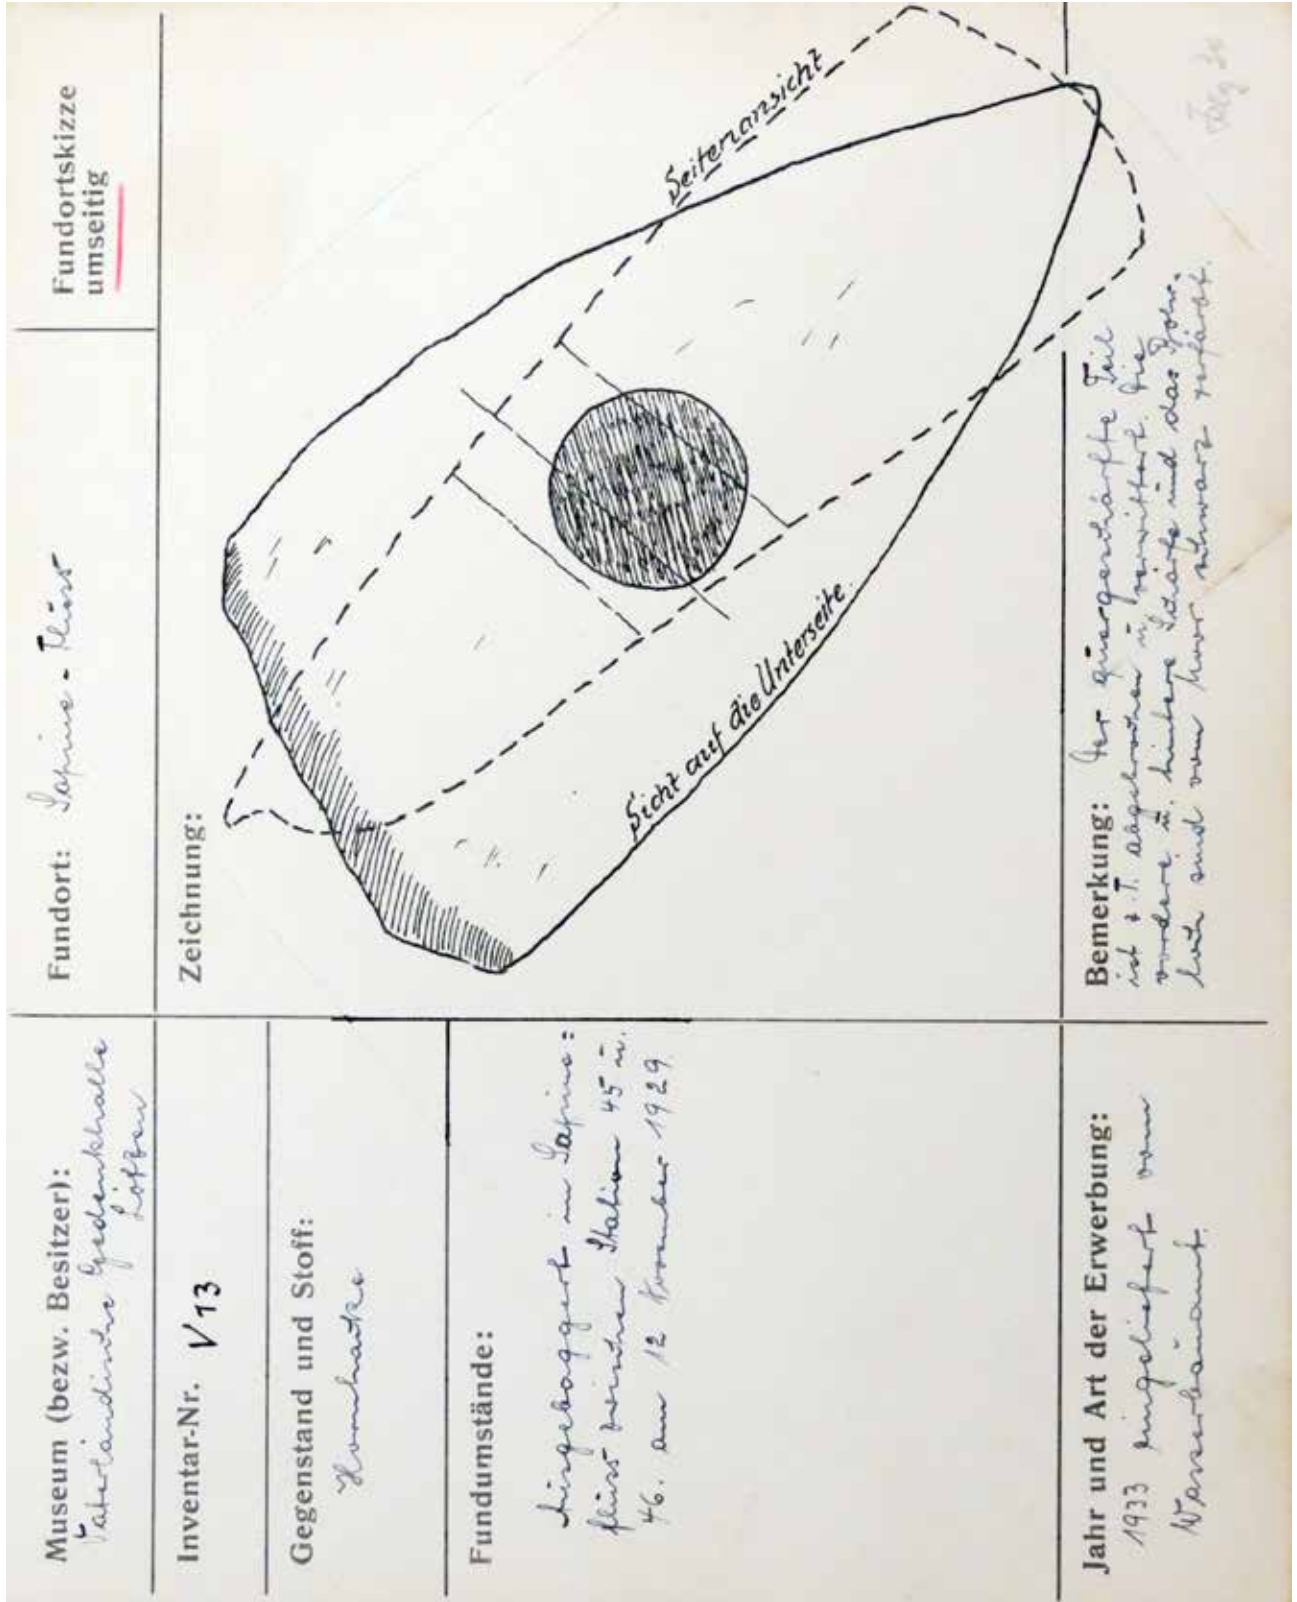 Museum (bezw. Besitzer):
Vaterländische Gedenkhalle
Lötzen
Fundort: Sapine-Fluss
Fundortskizze
umseitig
Inventar-Nr. V 13
Gegenstand und Stoff:
Hornhacke
Fundumstände:
Ausgebaggert im Sapine:
fluss zwischen Station 45 u.
46. am 12 November 1929
Jahr und Art der Erwerbung:
1933 eingeliefert vom
Wasserbauamt.
Zeichnung:
Seitenansicht
Sicht auf die Unterseite.
Bemerkung: Der quergeschärfte Teil
ist z.T. abgebrochen u. verwittert. Die
vordere u. hintere Schärfe und das Bohr-
loch sind vom Moor schwarz gefärbt.